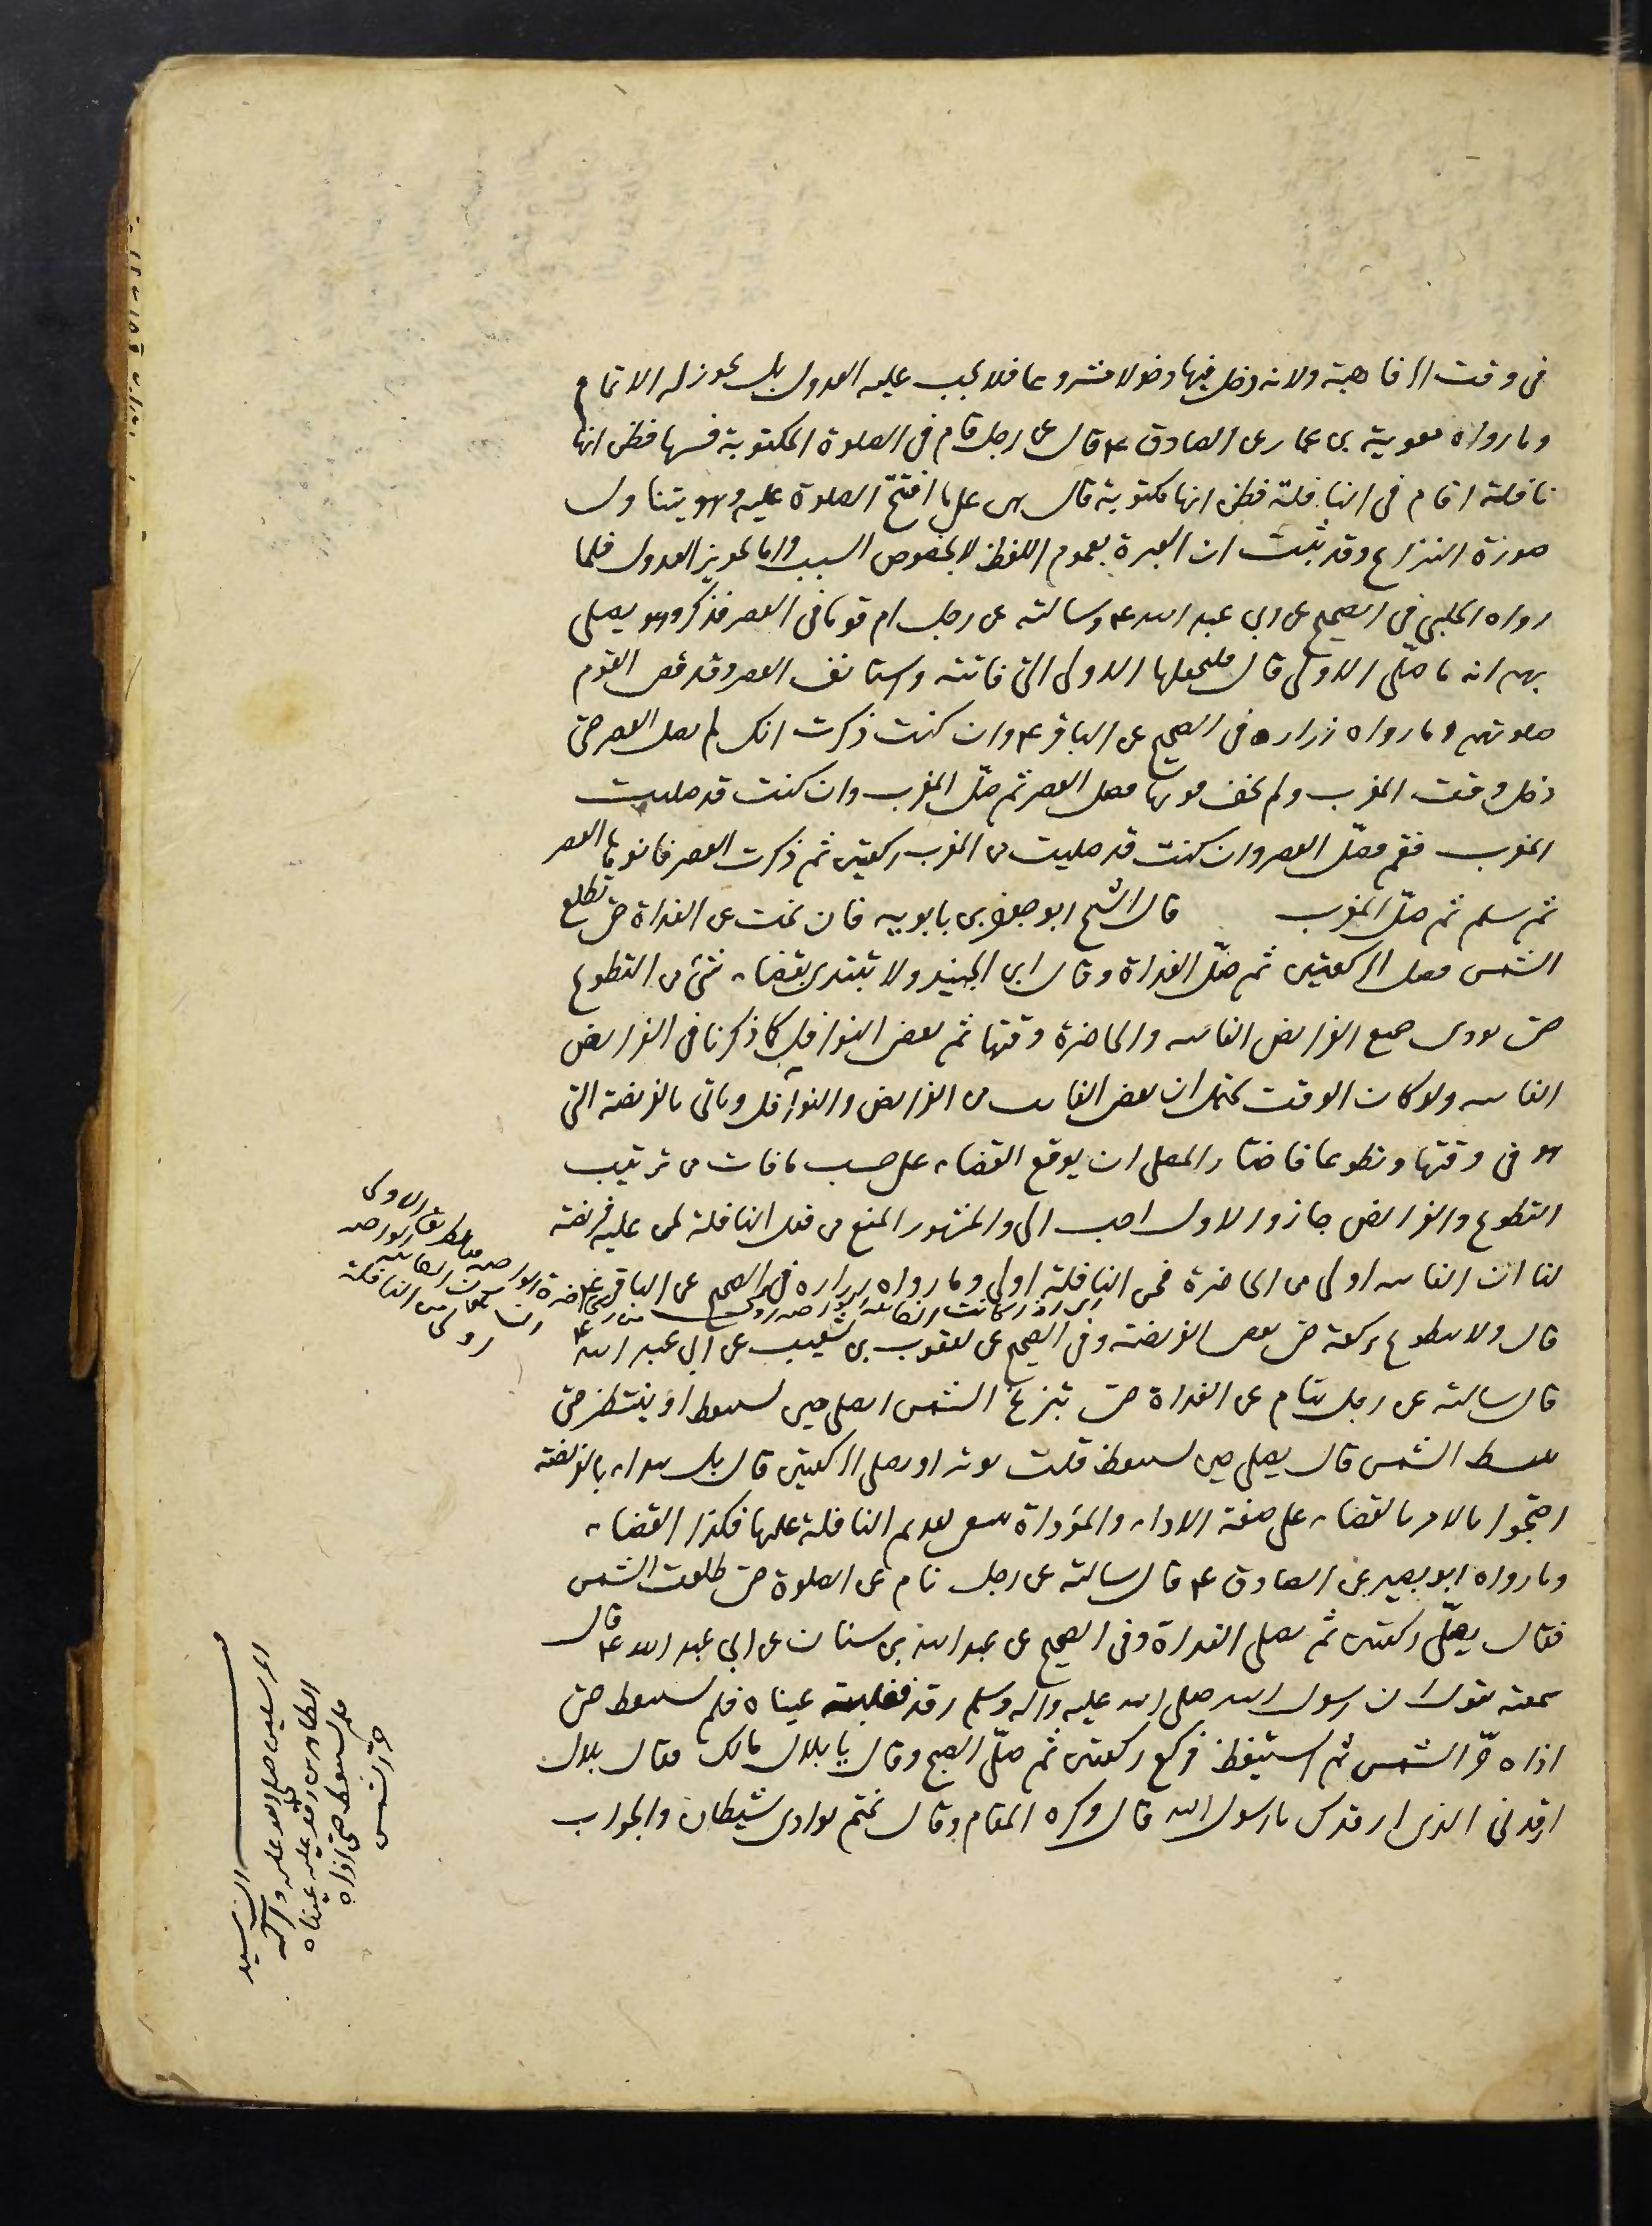 فى وقت الرفاهية ولانه دخل فيها دخولا مشروعا فلا يجب عليه العدول بل يجوز له الاتمام
وما رواه معوية بن عمار عن الصادق ع قال عن رجل قام فى الصلوة المكتوبة فسها فظن انها
نافلة او قام فى النافلة فظن انها مكتوبة قال هى على ما افتتح الصلوة عليه وهو يتناول
صورة النزاع وقد ثبت ان العبرة بعموم اللفظ لا بخصوص السبب واما تجويز العدول فلما
رواه الحلبى فى الصحيح عن ابى عبد الله ع وسالته عن رجل ام قوما فى العصر فذكر وهو يصلى
بهم انه ما صلى الاولى قال فليجعلها الاولى التى فاتته واستانف العصر وقد قضى القوم
صلوتهم وما رواه زراره فى الصحيح عن الباقر ع وان كنت ذكرت انك لم تصل العصر حتى
دخل وقت المغرب ولم تخف فوتها فصل العصر ثم صل المغرب وان كنت قد صليت
المغرب فقم فصل العصر وان كنت قد صليت من المغرب ركعتين ثم ذكرت العصر فانوها العصر
ثم سلم ثم صل المغرب قال الشيخ ابو جعفر بن بابويه فان نمت عن الغداة حتى تطلع
الشمس فصل الركعتين ثم صل الغداة وقال ابن الجنيد ولا تبتدى بقضاء شىء من التطوع
حتى يودى جميع الفرايض الفايته والحاضرة وقتها ثم يقضى النوافل كما ذكرنا فى الفرايض
الفايته ولو كان الوقت يحتمل ان يقضى الفايت من الفرايض والنوافل وياتى بالفريضة التى
هو فى وقتها وتطوعا فاختار المصلى ان يوقع القضاء على حسب ما فات من ترتيب
التطوع والفرايض جاز والاول احب الى والمشهور المنع من فعل النافلة لمن عليه فريضة
لنا ان الفايته اولى من الحاضرة فمن النافلة اولى وما رواه زراره فى الصحيح عن الباقر ع
قال ولا يتطوع بركعة حتى يقضى الفريضة وفى الصحيح عن يعقوب بن شعيب عن ابى عبد الله ع
قال سالته عن رجل ينام عن الغداة حتى تبزغ الشمس ايصلى حين يستيقظ او ينتظر حتى
تنبسط الشمس قال يصلى حين يستيقظ قلت يوتر او يصلى الركعتين قال بل يبداء بالفريضة
احتجوا بالامر بالقضاء على صفة الاداء والمؤداة يستحب تقديم النافلة عليها فكذا القضاء
وما رواه ابو بصير عن الصادق ع قال سالته عن رجل نام عن الصلوة حتى طلعت الشمس
فقال يصلى ركعتين ثم يصلى الغداة وفى الصحيح عن عبد الله بن سنان عن ابى عبد الله ع قال
سمعته يقول ان رسول الله صلى الله عليه واله وسلم رقد فغلبته عيناه فلم يستيقظ حتى
اذاه حر الشمس ثم استيقظ فركع ركعتين ثم صلى الصبح وقال يا بلال مالك فقال بلال
ارقدنى الذى ارقدك يا رسول الله قال وكره المقام وقال نمتم بوادى شيطان والجواب
ان سيد
المرسلين صلى الله عليه وآله
الطاهرين رقد عليه عيناه
فلم يستيقظ حتى اذاه
حر الشمس